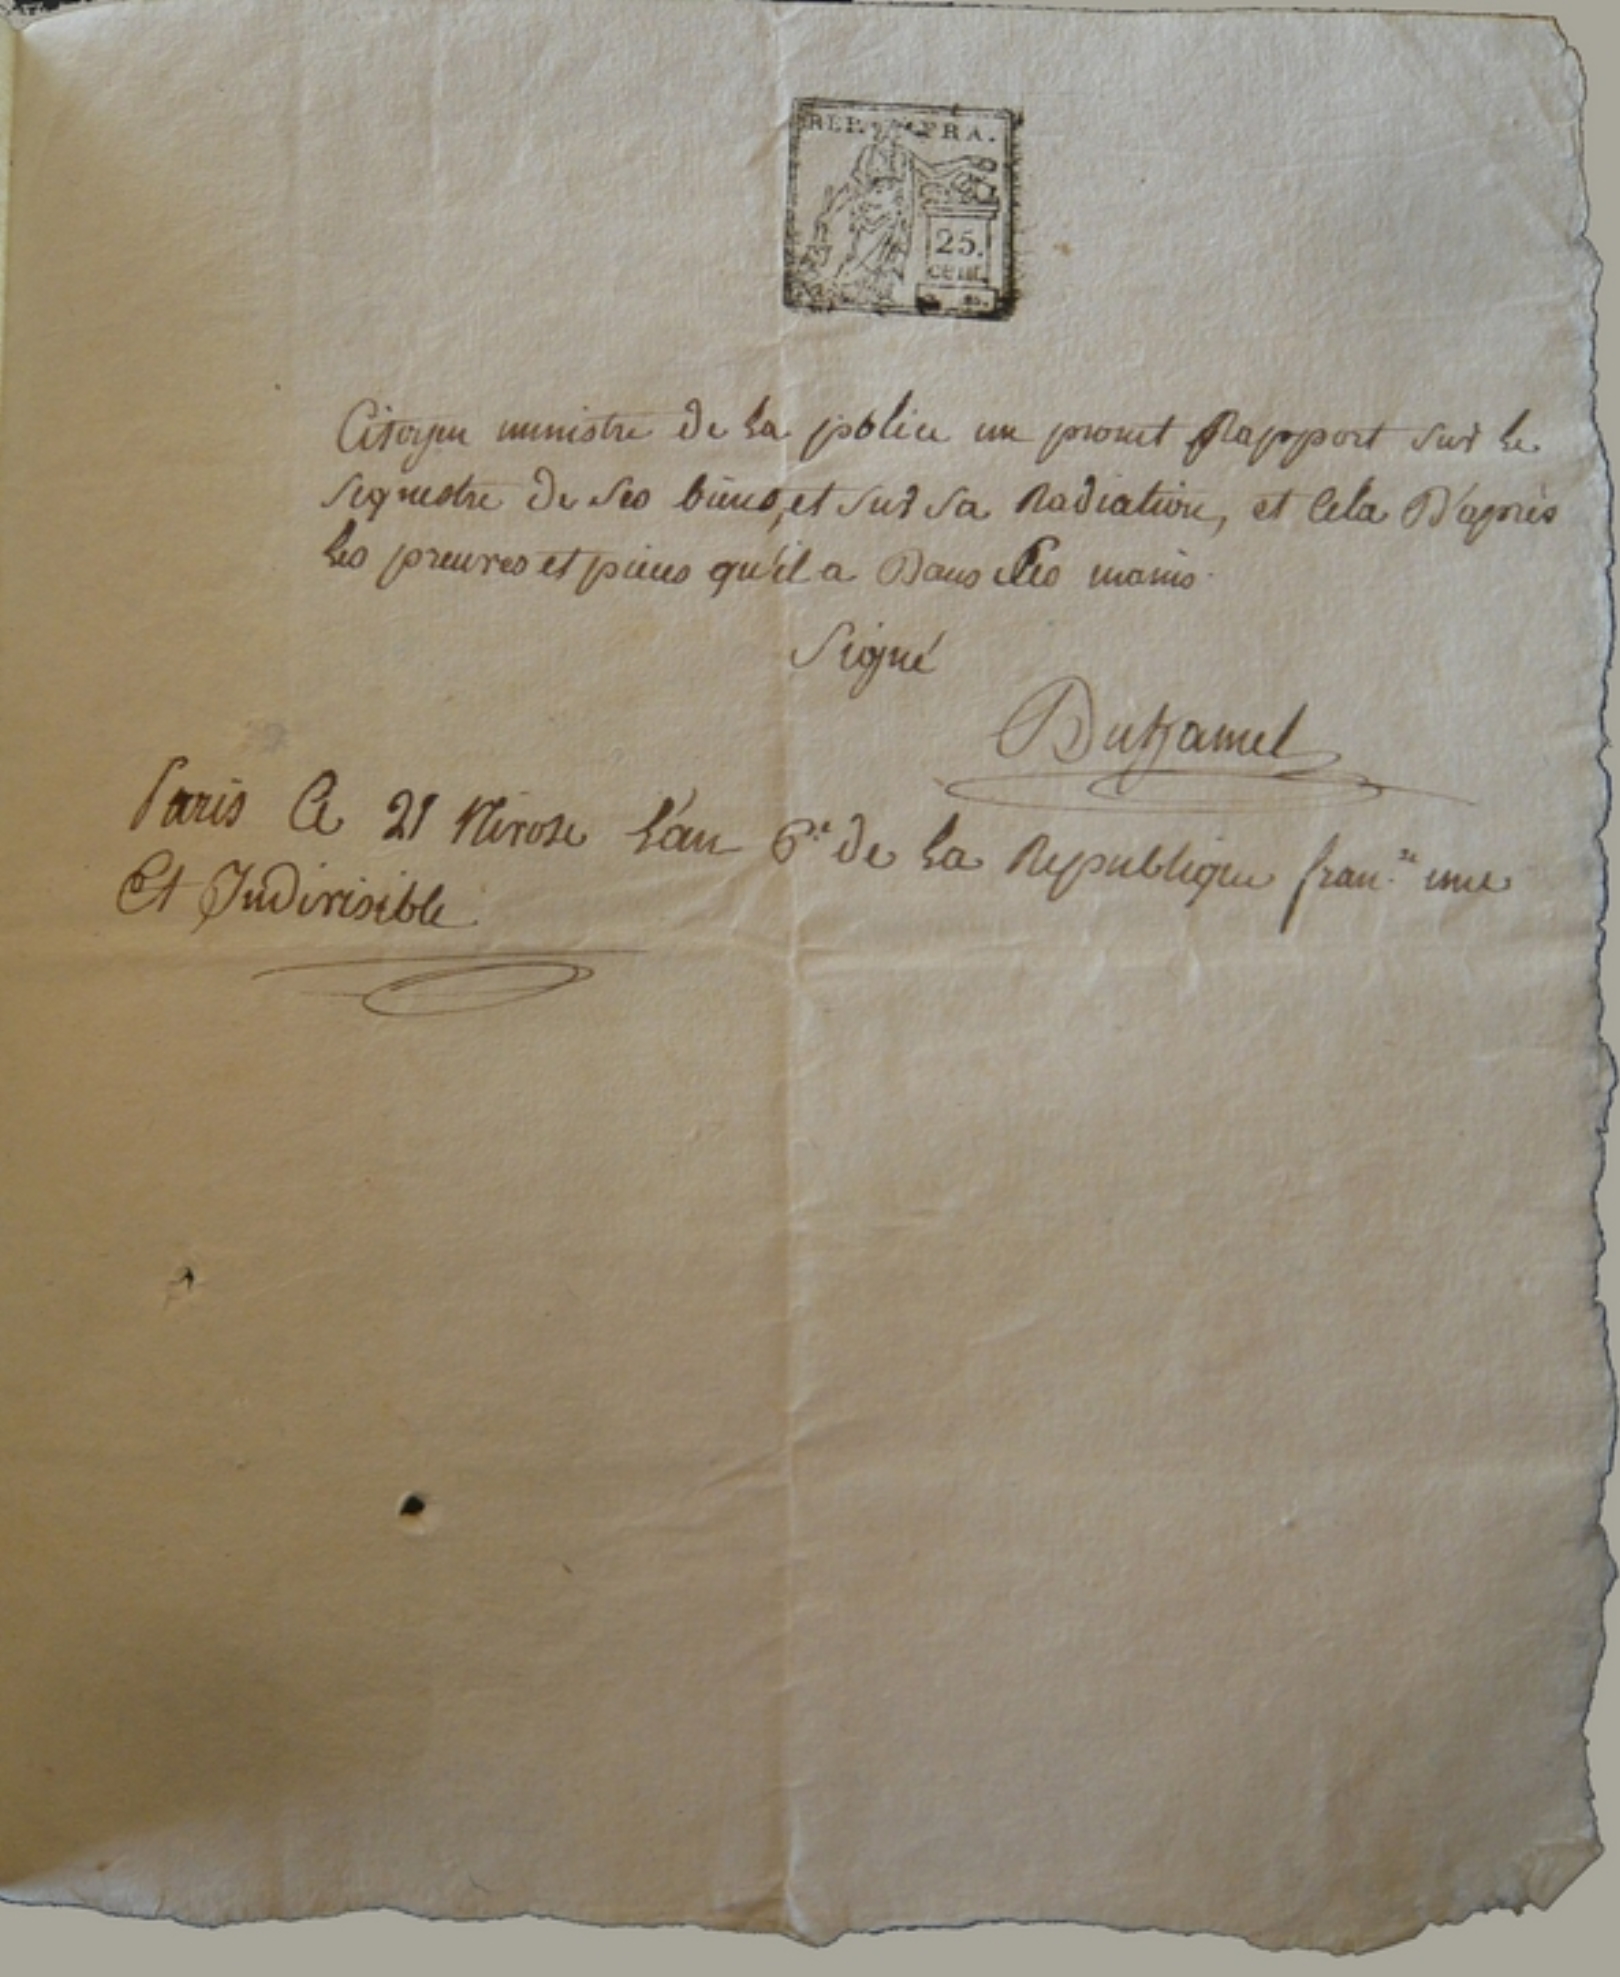 REP. FRA.
25.
cent.
Citoyen ministre de la police un promt Rapport sur le
sequestre de ses biens, et sur sa Radiation, et cela D'après
les preuves et pieces qu'il a Dans ses mains.
Signé
Duhamel
Paris Ce 21 Nivose l'an 6.e de la Republique fran.se une
Et Indivisible